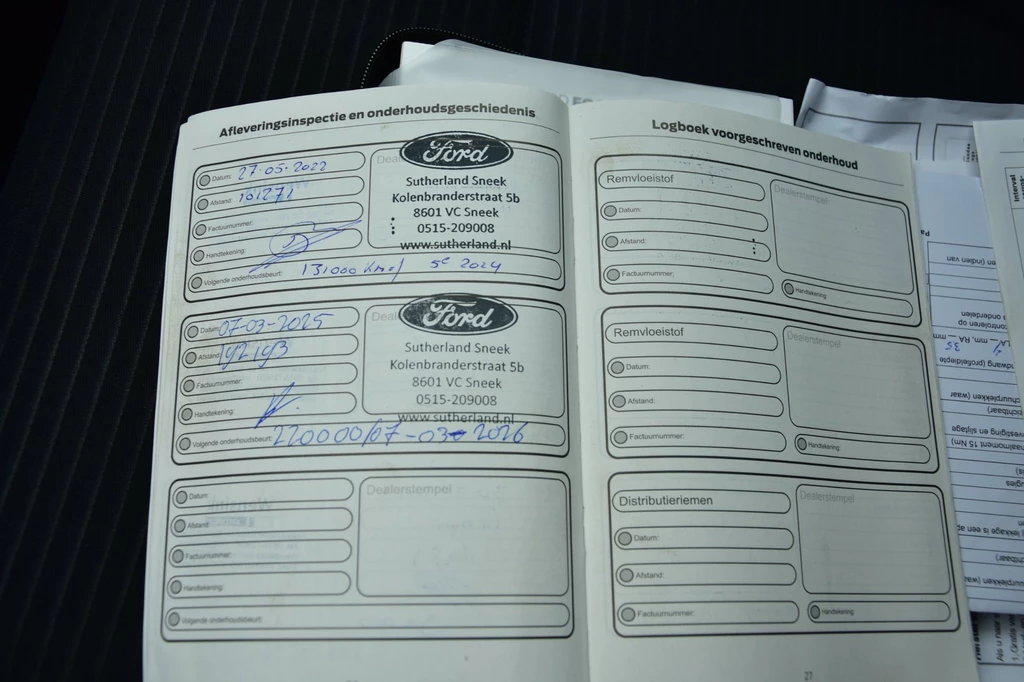 Afleveringsinspectie en onderhoudsgeschiedenis
Datum: 27-05-2022
Afstand: 161271
Factuurnummer:
Handtekening:
Volgende onderhoudsbeurt: 131000 Km / 5e 2024
Deal
Ford
Sutherland Sneek
Kolenbranderstraat 5b
8601 VC Sneek
0515-209008
www.sutherland.nl
Datum: 07-03-2025
Afstand: 192193
Factuurnummer:
Handtekening:
Volgende onderhoudsbeurt: 220000/07-03-2026
Deal
Ford
Sutherland Sneek
Kolenbranderstraat 5b
8601 VC Sneek
0515-209008
www.sutherland.nl
Datum:
Afstand:
Factuurnummer:
Handtekening:
Volgende onderhoudsbeurt:
Dealerstempel
Logboek voorgeschreven onderhoud
Remvloeistof
Datum:
Afstand:
Factuurnummer:
Dealerstempel
Handtekening:
Remvloeistof
Datum:
Afstand:
Factuurnummer:
Dealerstempel
Handtekening:
Distributieriemen
Datum:
Afstand:
Factuurnummer:
Dealerstempel
Handtekening:
27
Interval
(indien van
onderdelen
controleren op
mm, RA, mm
35
(profieldiepte
vestiging en slijtage
15 Nm)
lekkage is een
Als u naar